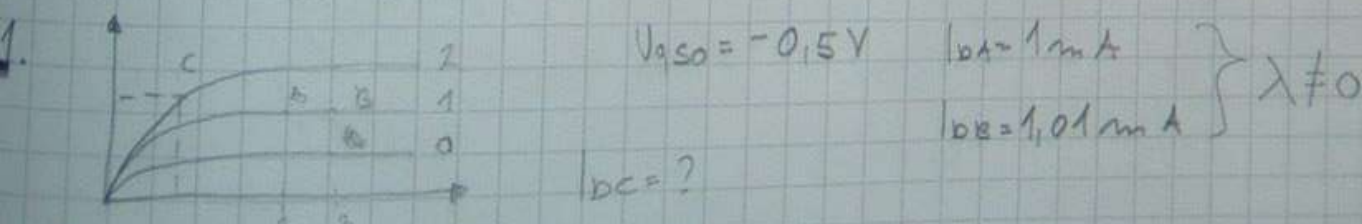 1.
C 2
A B 1
0
Ugso = -0,5 V
IDA = 1 mA
IDB = 1,01 mA } λ ≠ 0
IDC = ?